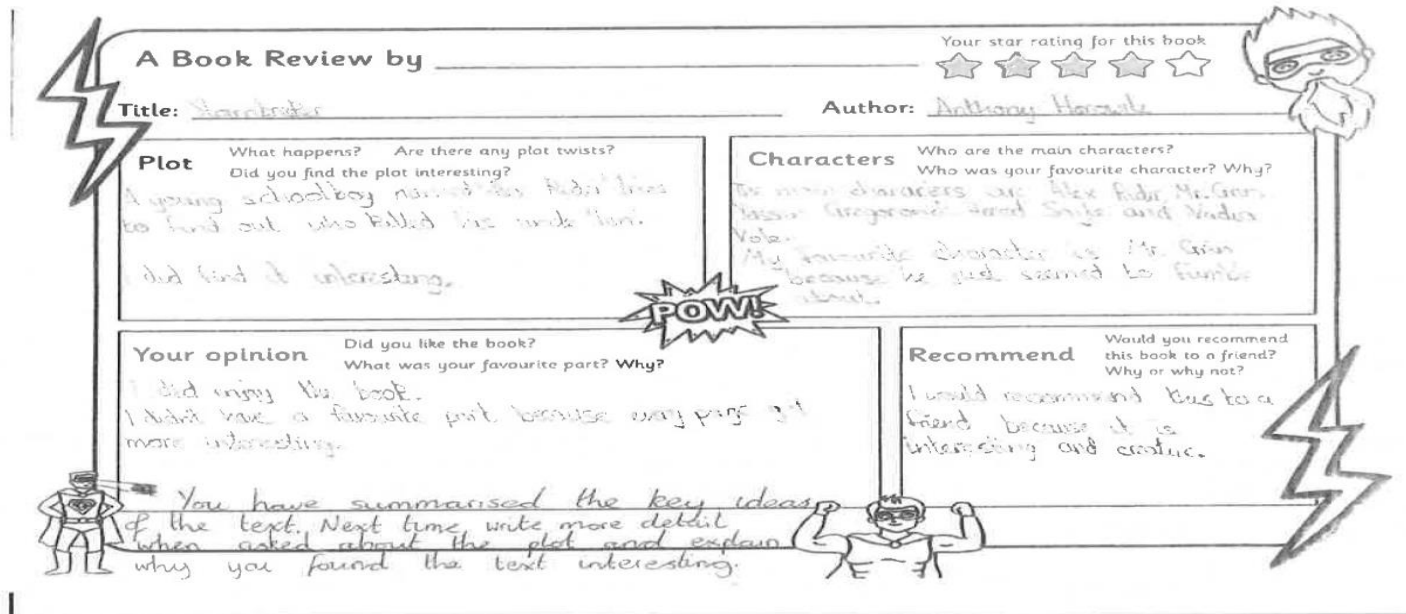 A Book Review by
Your star rating for this book
Title: Stormbreaker
Author: Anthony Horowitz
Plot
What happens? Are there any plot twists?
Did you find the plot interesting?
A young schoolboy named Alex Rider tries
to find out who killed his uncle Ian.
I did find it interesting.
Characters
Who are the main characters?
Who was your favourite character? Why?
The main characters are Alex Rider, Mr. Grin
Yassen Gregorovich and
Vole.
My favourite character is Mr. Grin
because he just seemed to
about.
POW!
Your opinion
Did you like the book?
What was your favourite part? Why?
I did enjoy the book.
I didn't have a favourite part because every page got
more interesting.
Recommend
Would you recommend
this book to a friend?
Why or why not?
I would recommend this to a
friend because it is
interesting and
You have summarised the key ideas
of the text. Next time, write more detail
when asked about the plot and explain
why you found the text interesting.